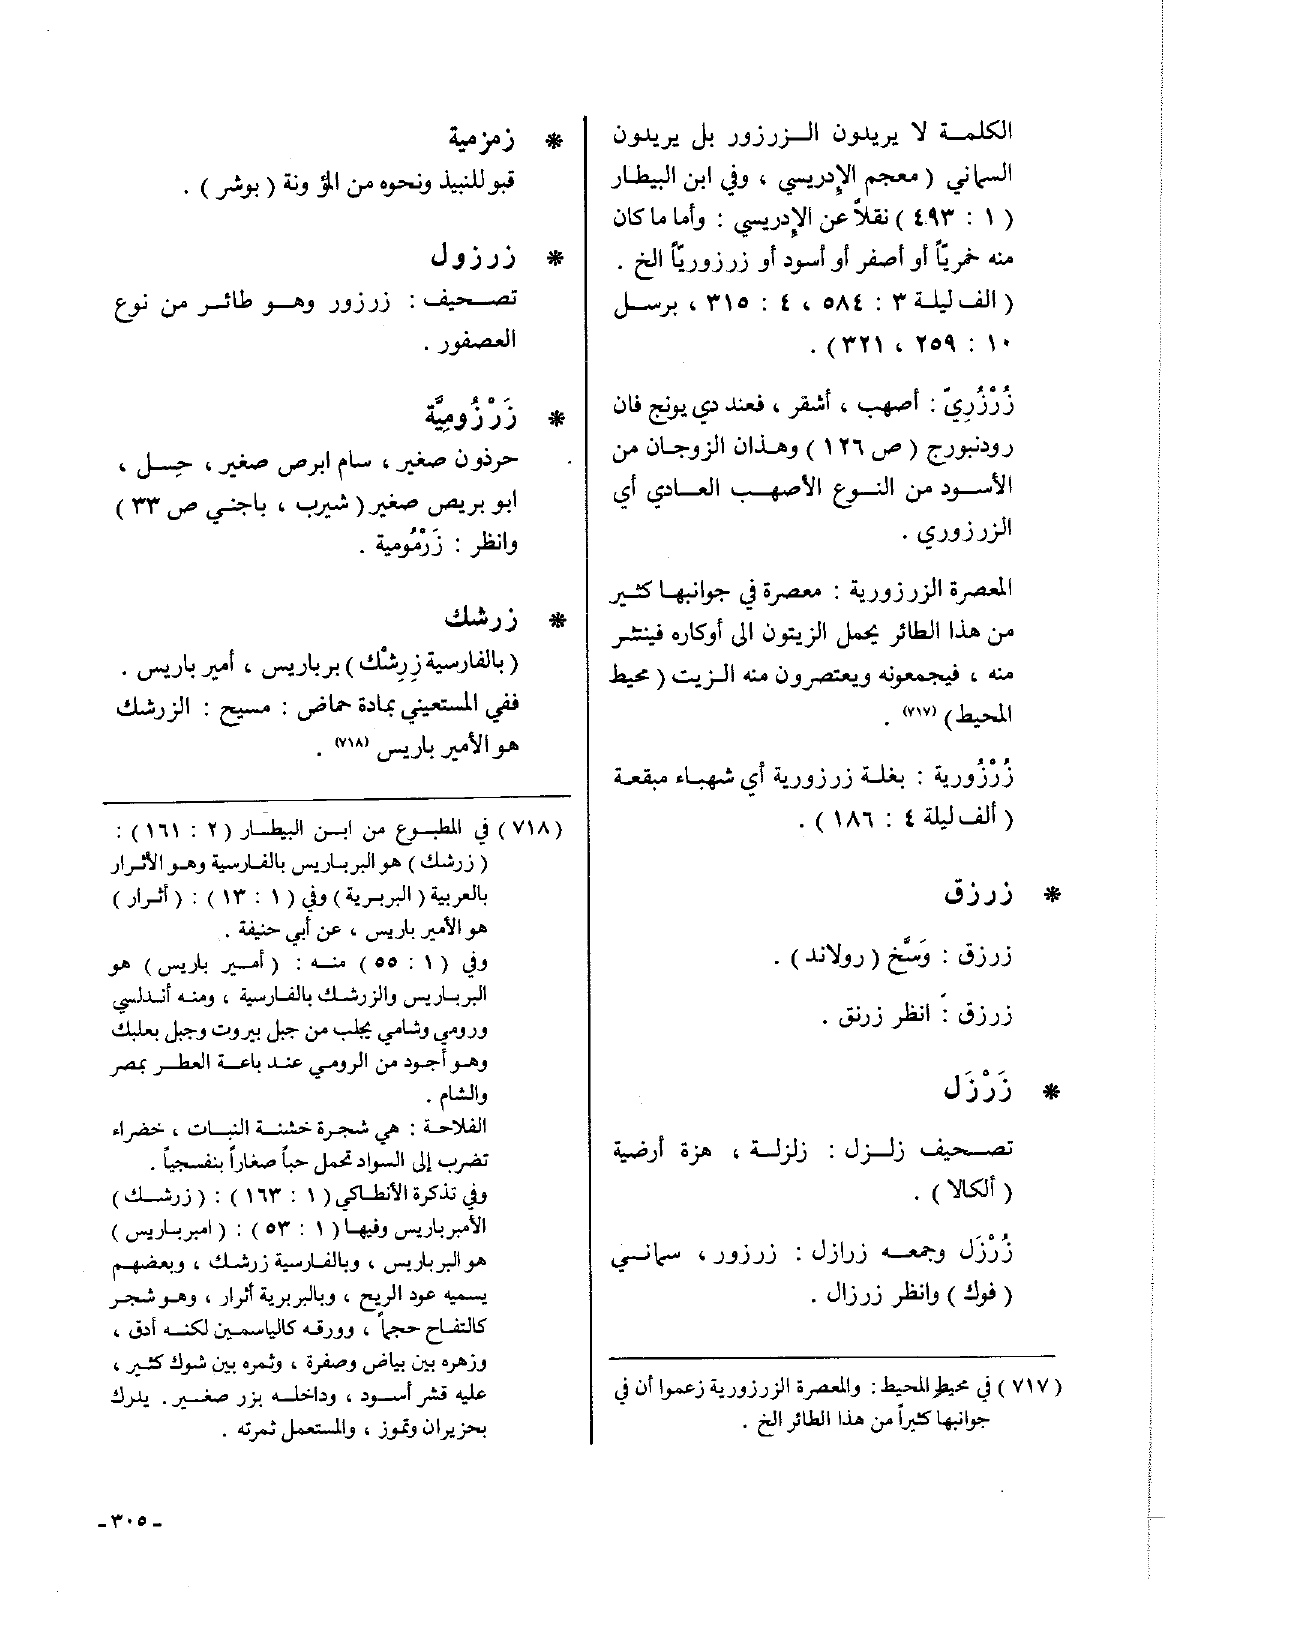 الكلمة لا يريدون الزرزور بل يريدون
السماني ( معجم الإدريسي ، وفي ابن البيطار
( ١ : ٤٩٣ ) نقلاً عن الإدريسي : وأما ما كان
منه خمريّاً أو أصفر أو أسود أو زرزوريّاً الخ .
( الف ليلة ٣ : ٥٨٤ ، ٤ : ٣١٥ ، برسل
١٠ : ٢٥٩ ، ٣٢١) .
زُرْزُرِيّ : أصهب ، أشقر ، فعند دي يونج فان
رودنبورج ( ص ١٢٦ ) وهذان الزوجان من
الأسود من النوع الأصهب العادي أي
الزرزوري .
المعصرة الزرزورية : معصرة في جوانبها كثير
من هذا الطائر يحمل الزيتون الى أوكاره فينتثر
منه ، فيجمعونه ويعتصرون منه الزيت ( محيط
المحيط ) (٧١٧) .
زُرْزُورية : بغلة زرزورية أي شهباء مبقعة
( ألف ليلة ٤ : ١٨٦ ) .
* زرزق
زرزق : وَسَّخ ( رولاند ) .
زرزق : انظر زرنق .
* زَرْزَل
تصحيف زلزل : زلزلة ، هزة أرضية
( ألكالا ) .
زُرْزَل وجمعه زرازل : زرزور ، سماني
( فوك ) وانظر زرزال .
( ٧١٧ ) في محيط المحيط : والمعصرة الزرزورية زعموا أن في
جوانبها كثيراً من هذا الطائر الخ .
* زمزمية
قبو للنبيذ ونحوه من المؤونة ( بوشر ) .
* زرزول
تصحيف : زرزور وهو طائر من نوع
العصفور .
* زَرْزُومِيَّة
حرذون صغير ، سام ابرص صغير ، حسل ،
ابو بريص صغير ( شيرب ، باجني ص ٣٣ )
وانظر : زَرْمُومية .
* زرشك
( بالفارسية زِرِشْك ) برباريس ، أمير باريس .
ففي المستعيني بمادة حماض : مسيح : الزرشك
هو الأمير باريس (٧١٨) .
( ٧١٨ ) في المطبوع من ابن البيطار ( ٢ : ١٦١ ) :
( زرشك ) هو البرباريس بالفارسية وهو الأثرار
بالعربية ( البربرية ) وفي ( ١ : ١٣ ) : ( أثرار )
هو الأمير باريس ، عن أبي حنيفة .
وفي ( ١ : ٥٥ ) منه : ( أمير باريس ) هو
البرباريس والزرشك بالفارسية ، ومنه أندلسي
ورومي وشامي يجلب من جبل بيروت وجبل بعلبك
وهو أجود من الرومي عند باعة العطر بمصر
والشام .
الفلاحة : هي شجرة خشنة النبات ، خضراء
تضرب إلى السواد تحمل حباً صغاراً بنفسجياً .
وفي تذكرة الأنطاكي ( ١ : ١٦٣ ) : ( زرشك )
الأمبرباريس وفيها ( ١ : ٥٣ ) : ( امبرباريس )
هو البرباريس ، وبالفارسية زرشك ، وبعضهم
يسميه عود الريح ، وبالبربرية أثرار ، وهو شجر
كالتفاح حجماً ، وورقه كالياسمين لكنه أدق ،
وزهره بين بياض وصفرة ، وثمره بين شوك كثير ،
عليه قشر أسود ، وداخله بزر صغير . يدرك
بحزيران وتموز ، والمستعمل ثمرته .
ـ ٣٠٥ ـ